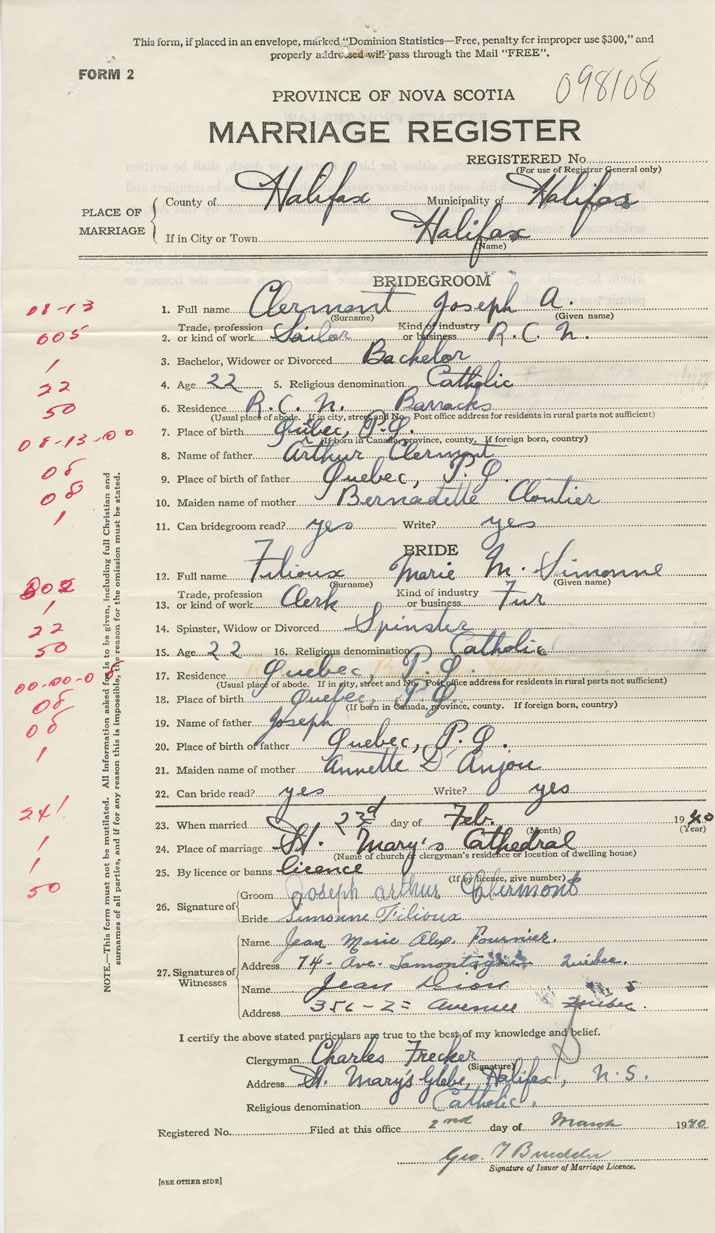 This form, if placed in an envelope, marked "Dominion Statistics—Free, penalty for improper use $300," and
properly addressed will pass through the Mail "FREE".
FORM 2
098108
PROVINCE OF NOVA SCOTIA
MARRIAGE REGISTER
REGISTERED No.
(For use of Registrar General only)
PLACE OF MARRIAGE
County of Halifax Municipality of Halifax
If in City or Town Halifax
(Name)
BRIDEGROOM
08-13 1. Full name Clermont Joseph A.
(Surname) (Given name)
005 2. Trade, profession or kind of work Sailor Kind of industry or business R.C.N.
1 3. Bachelor, Widower or Divorced Bachelor
22 4. Age 22 5. Religious denomination Catholic
50 6. Residence R.C.N. Barracks
(Usual place of abode. If in city, street and No. Post office address for residents in rural parts not sufficient)
08-13-00 7. Place of birth Quebec, P.Q.
(If born in Canada, province, county. If foreign born, country)
8. Name of father Arthur Clermont
08 9. Place of birth of father Quebec, P.Q.
08 10. Maiden name of mother Bernadette Cloutier
1 11. Can bridegroom read? yes Write? yes
BRIDE
12. Full name Filioux Marie M. Simonne
(Surname) (Given name)
802 13. Trade, profession or kind of work Clerk Kind of industry or business Fur
1
22 14. Spinster, Widow or Divorced Spinster
50 15. Age 22 16. Religious denomination Catholic
17. Residence Quebec, P.Q.
(Usual place of abode. If in city, street and No. Post office address for residents in rural parts not sufficient)
00-00-0 18. Place of birth Quebec, P.Q.
(If born in Canada, province, county. If foreign born, country)
08 19. Name of father Joseph
08 20. Place of birth of father Quebec, P.Q.
1 21. Maiden name of mother Annette D'Anjou
22. Can bride read? yes Write? yes
241 23. When married 23d day of Feb. 1940
(Month) (Year)
1 24. Place of marriage St. Mary's Cathedral
(Name of church or clergyman's residence or location of dwelling house)
1 25. By licence or banns licence
(If by licence, give number)
50 26. Signature of Groom Joseph Arthur Clermont
Bride Simonne Filioux
27. Signatures of Witnesses
Name Jean Marie Alex. Fournier.
Address 74- Ave. Lamontagne Québec.
Name Jean Dion
Address 356-2e Avenue Québec.
NOTE.—This form must not be mutilated. All information asked for is to be given, including full Christian and
surnames of all parties, and if for any reason this is impossible, the reason for the omission must be stated.
I certify the above stated particulars are true to the best of my knowledge and belief.
Clergyman Charles Frecker
(Signature)
Address St. Mary's Glebe, Halifax, N.S.
Religious denomination Catholic.
Registered No. Filed at this office 2nd day of March 1940
Geo.
Signature of Issuer of Marriage Licence.
[SEE OTHER SIDE]